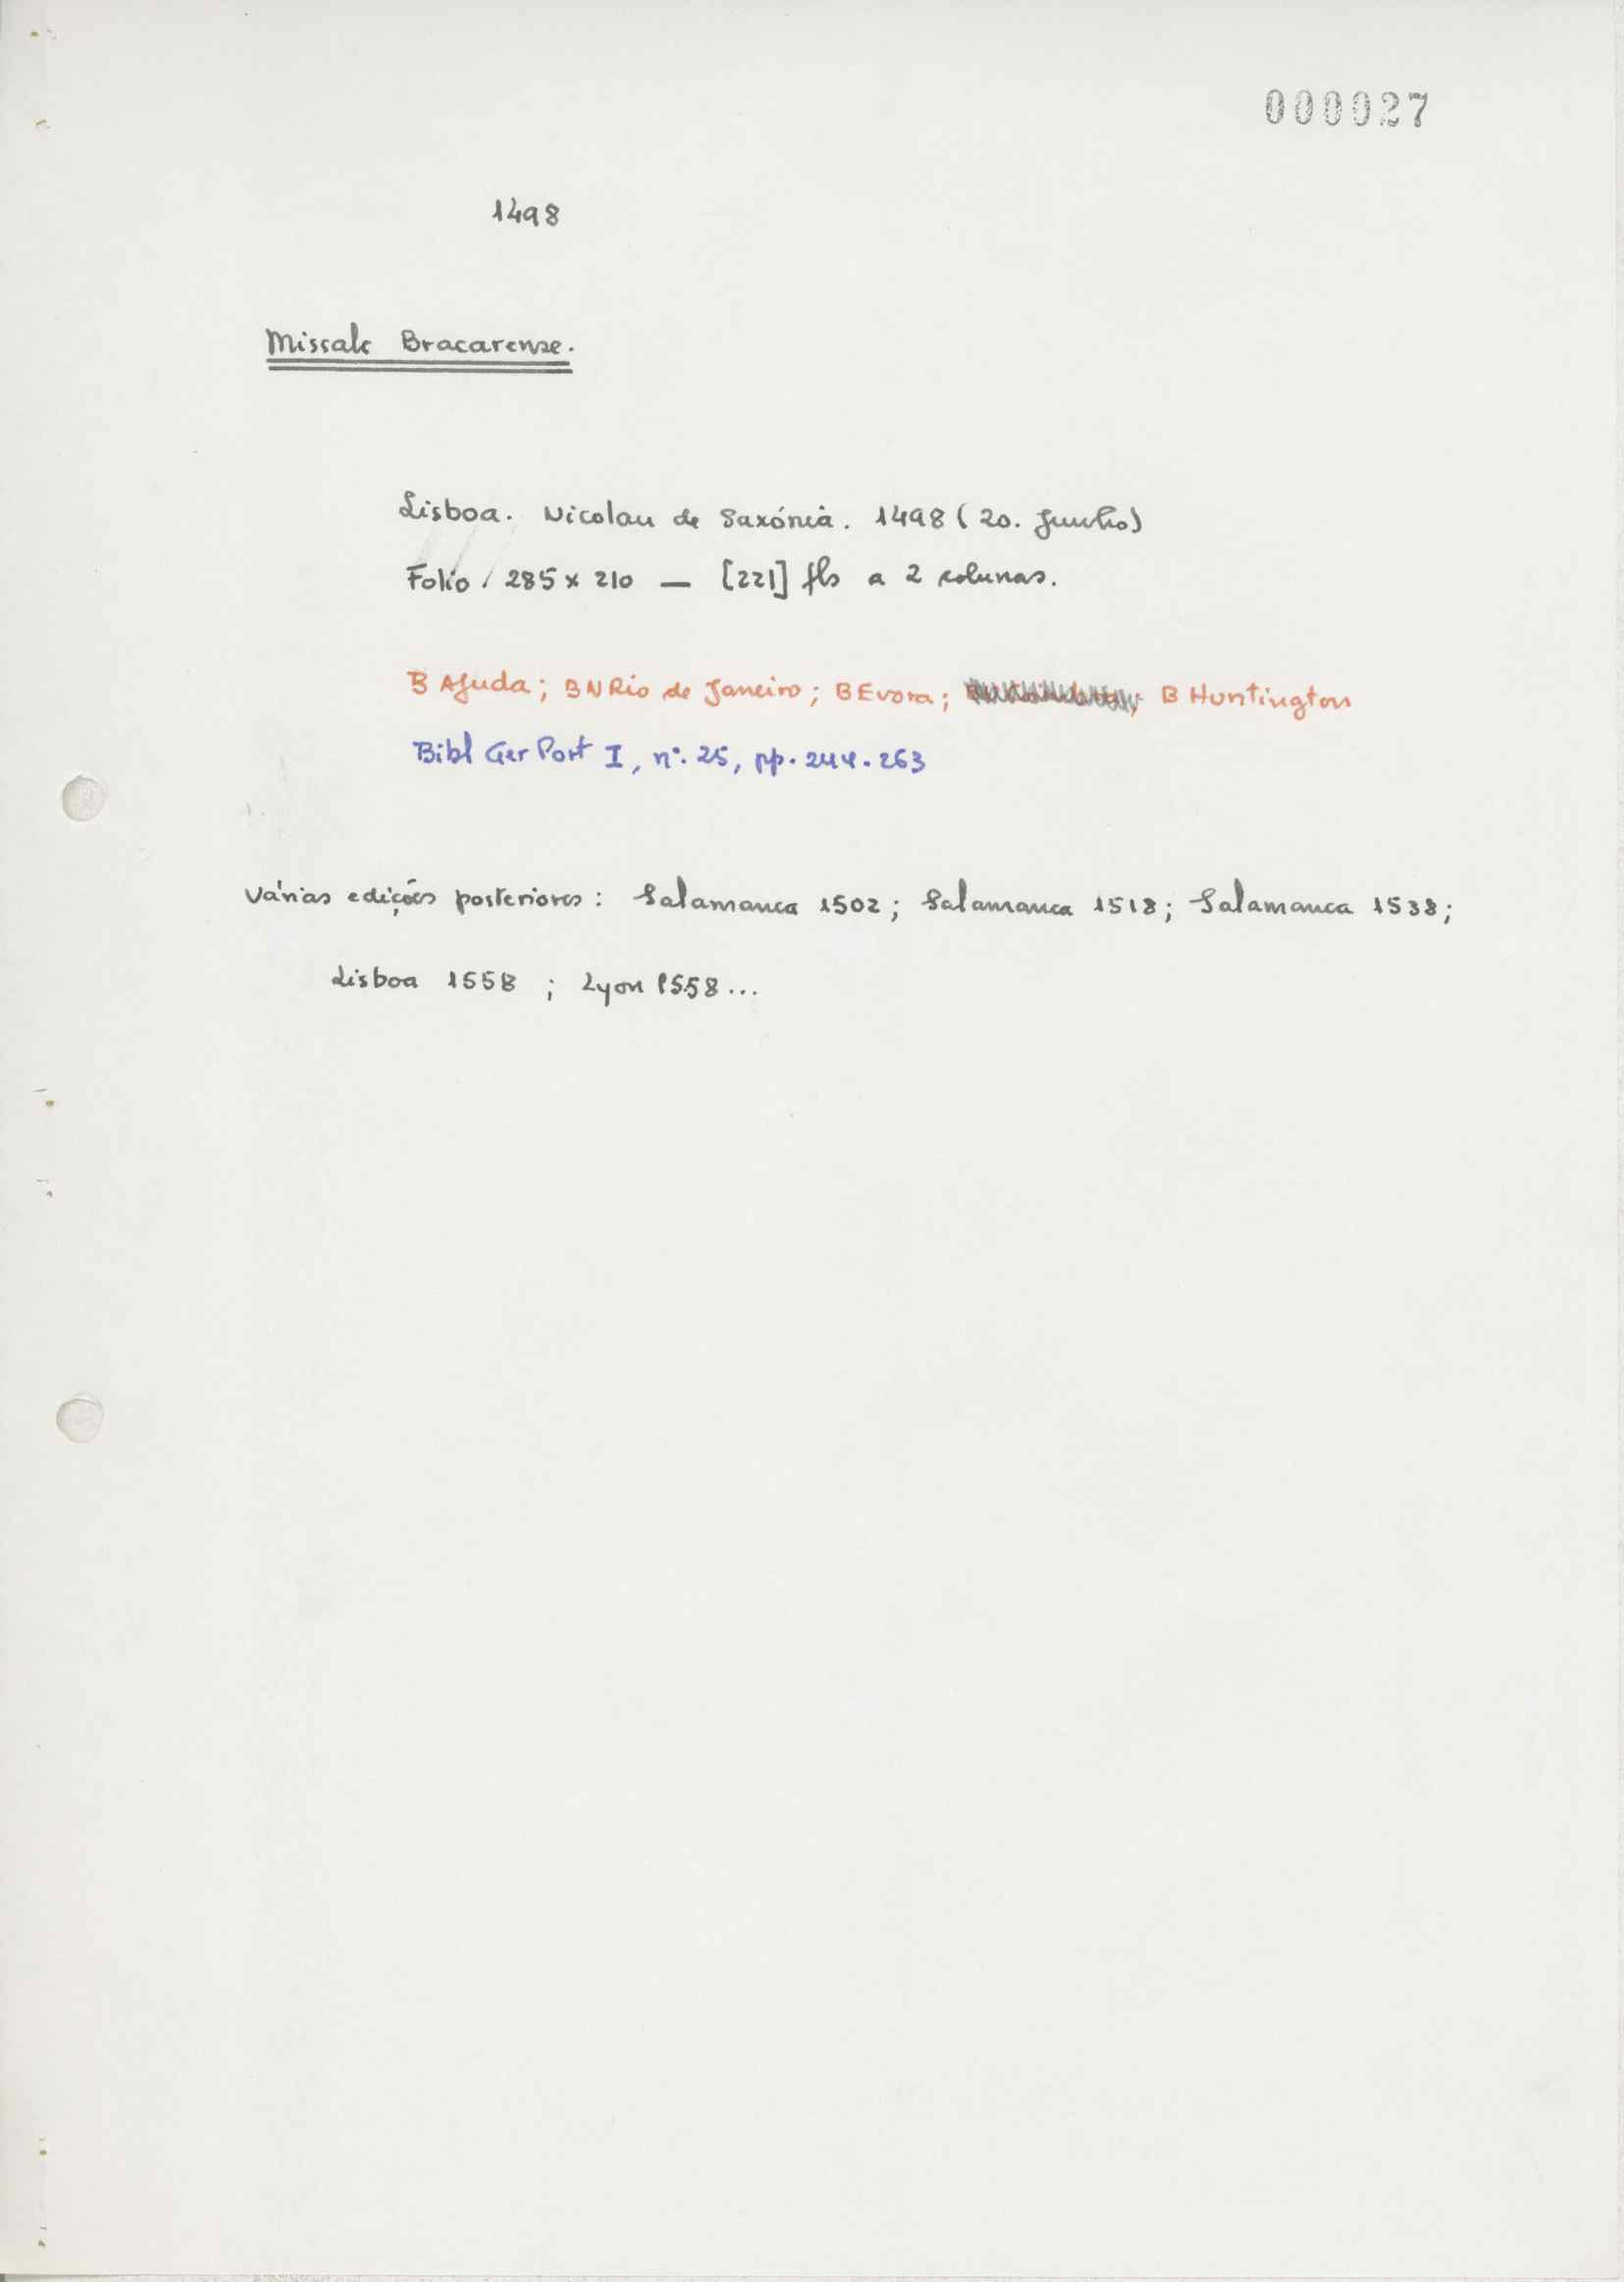 000027
1498
Missale Bracarense.
Lisboa. Nicolau de Saxónia. 1498 (20. Junho)
Folio. 285 x 210 — [221] fls a 2 colunas.
B Ajuda; BN Rio de Janeiro; B Evora; ; B Huntington
Bibl Ger Port I, nº. 25, pp. 244-263
Várias edições posteriores: Salamanca 1502; Salamanca 1518; Salamanca 1538;
Lisboa 1558 ; Lyon 1558...